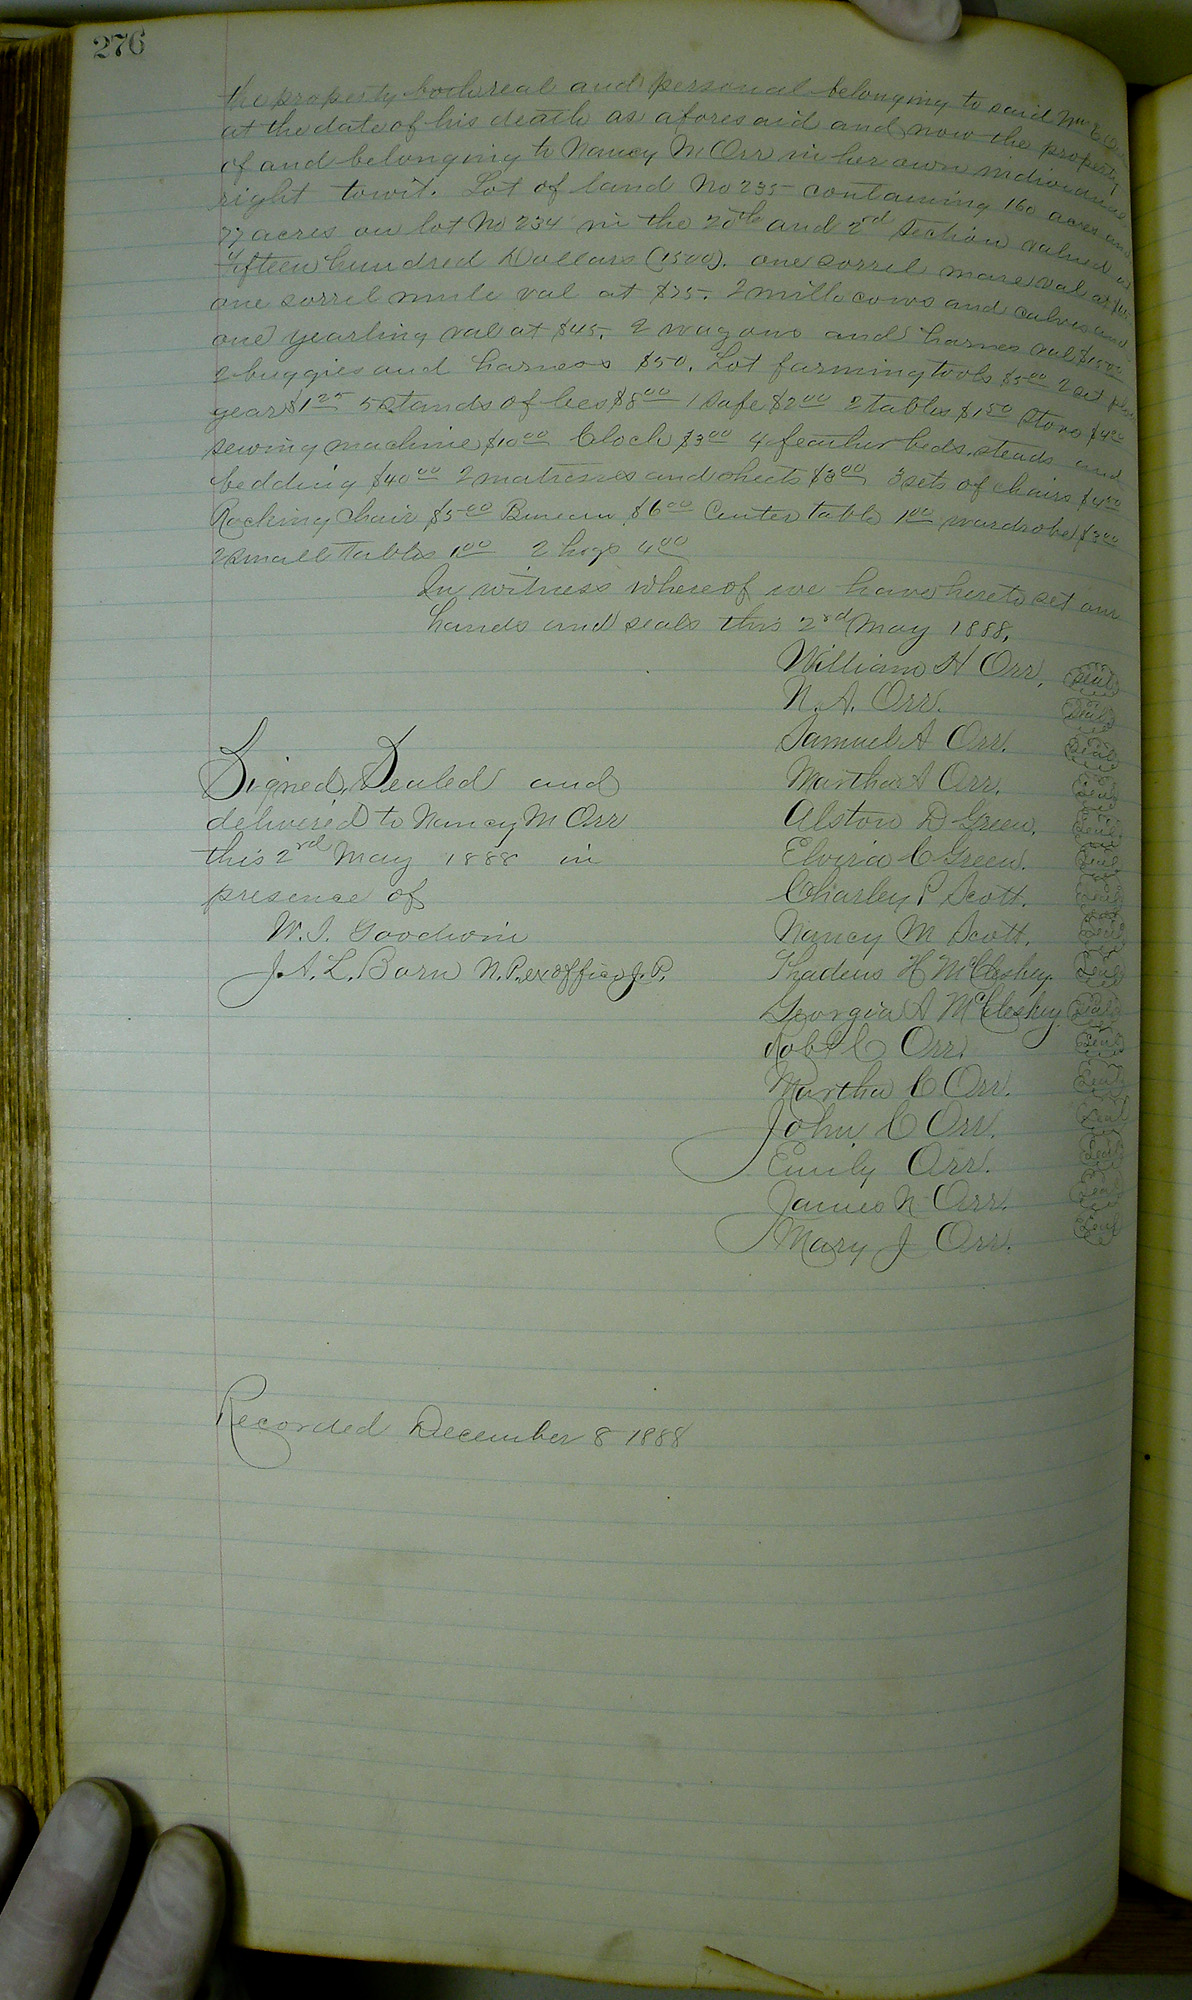 276
the property both real and personal belonging to said Wm E Orr
at the date of his death as aforesaid and now the property
of and belonging to Nancy M Orr in her own individual
right towit. Lot of land No 235 containing 160 acres and
77 acres on lot No 234 in the 20th and 2rd Section valued at
Fifteen hundred Dollars (1500). one sorrel mare val at
one sorrel mule val at $75. 2 milk cows and calves and
one yearling val at $45. 2 wagons and harnes val $15.00
2 buggies and harness $50. Lot farming tools $5.00 2 set plow
gear $1.25 5 stands of bees $8.00 1 safe $2.00 2 tables $1.50 Stove $4.00
sewing machine $10.00 Clock $3.00 4 feather beds, steads and
bedding $40.00 2 matresses and sheets $3.00 3 sets of chairs $4.50
Rocking Chair $5.00 Bureau $6.00 Center table 1.00 wardrobe $3.00
2 small Tables 1.00 2 hogs 4.00
In witness whereof we have hereto set our
hands and seals this 2rd May 1888.
William H Orr. Seal
N. A. Orr. Seal
Samuel A Orr. Seal
Signed, Sealed and Martha A Orr. Seal
delivered to Nancy M Orr Alston D Green. Seal
this 2rd May 1888 in Elvira C Green. Seal
presence of Charley P Scott. Seal
W. I. Goodwin Nancy M Scott. Seal
J. A. L. Born N.P. ex officio J.P. Thadeus H McCleskey. Seal
Georgia A McCleskey Seal
Robt C Orr. Seal
Martha C Orr. Seal
John C Orr. Seal
Emily Orr. Seal
James N Orr. Seal
Mary J Orr. Seal
Recorded December 8 1888